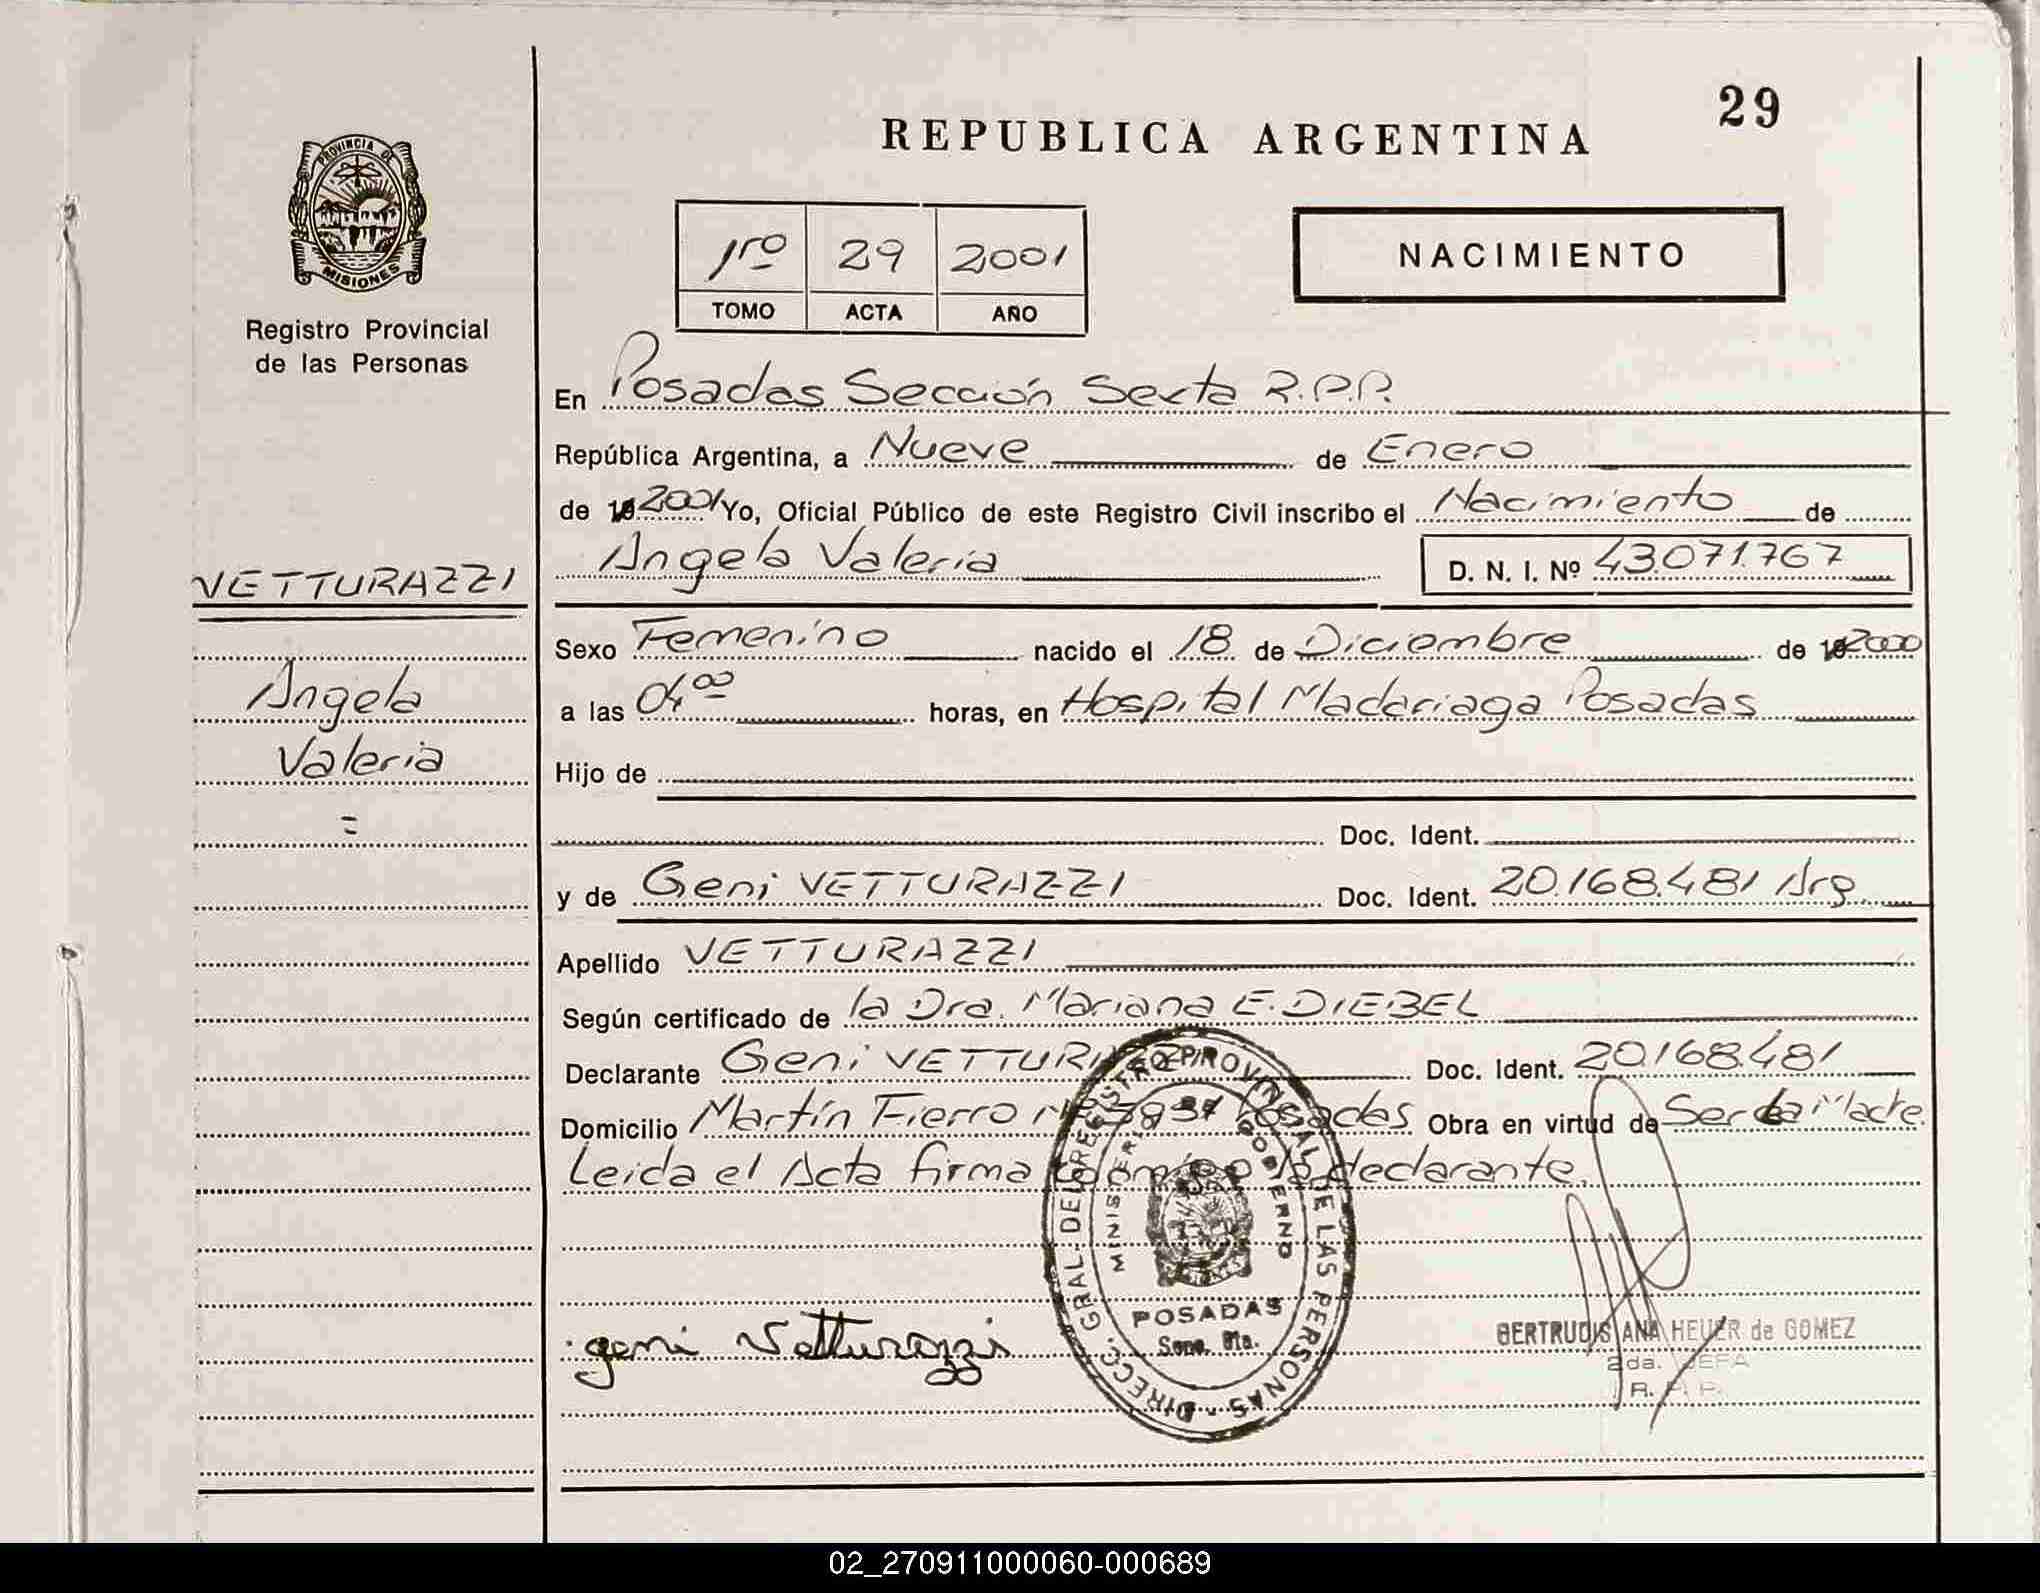 29
REPUBLICA ARGENTINA
PROVINCIA DE
MISIONES
Registro Provincial
de las Personas
1ro 29 2001
TOMO ACTA AÑO
NACIMIENTO
En Posadas Sección Sexta R.P.P.
República Argentina, a Nueve de Enero
de 19 2001 Yo, Oficial Público de este Registro Civil inscribo el Nacimiento de
Angela Valeria D. N. I. Nº 43.071.767
VETTURAZZI
Angela
Valeria
=
Sexo Femenino nacido el 18 de Diciembre de 19 2000
a las 04⁰⁰ horas, en Hospital Madariaga Posadas
Hijo de
Doc. Ident.
y de Geni VETTURAZZI Doc. Ident. 20.168.481 Arg.
Apellido VETTURAZZI
Según certificado de la Dra. Mariana E. DIEBEL
Declarante Geni VETTURAZZI Doc. Ident. 20.168.481
Domicilio Martín Fierro Nº Posadas Obra en virtud de Ser la Madre
Leida el Acta firma conmigo la declarante.
DIRECC. GRAL. DEL REGISTRO PROVINCIAL DE LAS PERSONAS
MINISTERIO DE GOBIERNO
POSADAS
Secc. 6ta.
geni Vetturazzi
GERTRUDIS ANA HEUER de GOMEZ
2da. JEFA
R. P. P.
02_270911000060-000689